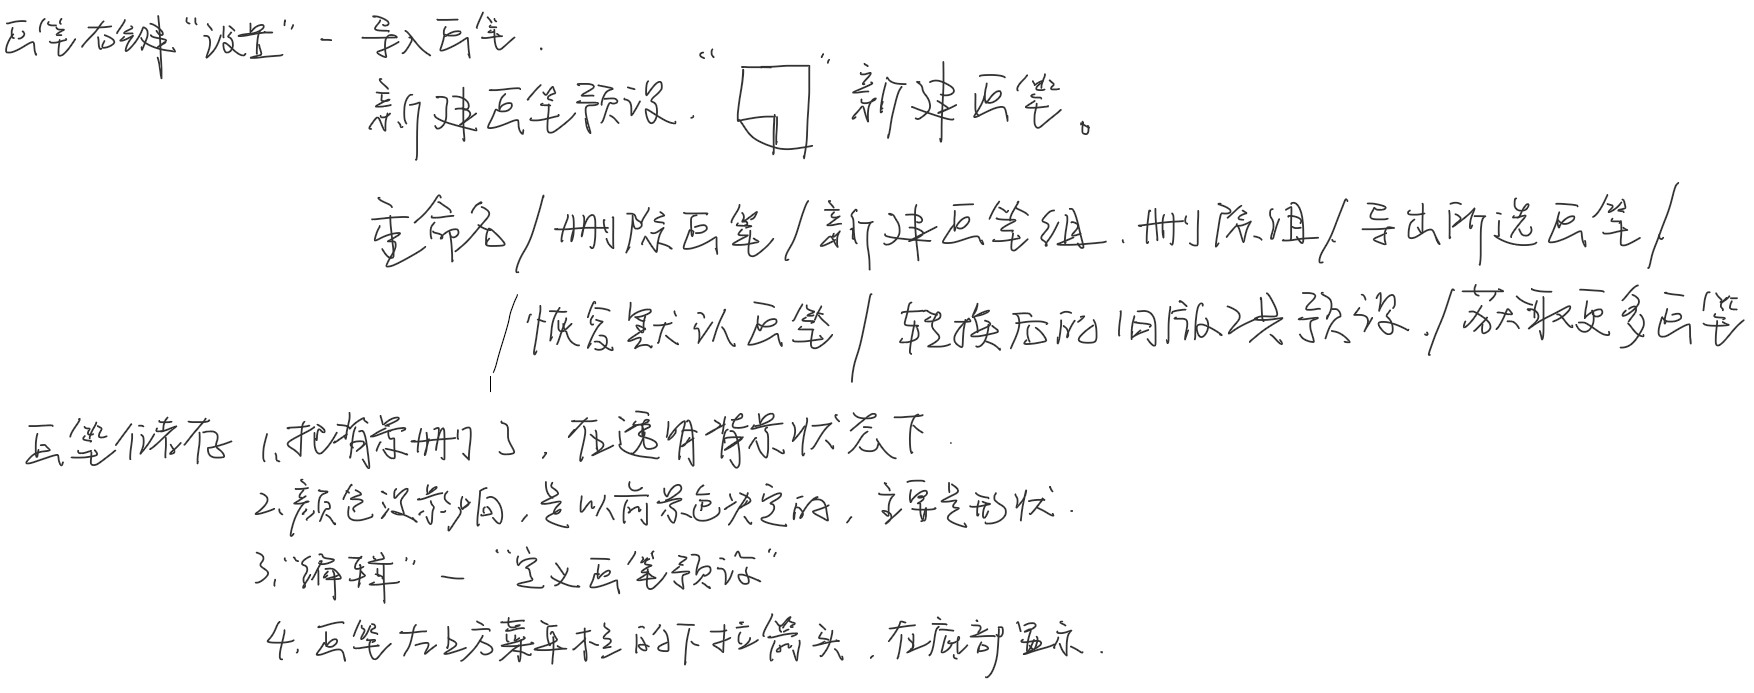 画笔右键“设置” - 导入画笔.
新建画笔预设. “ ” 新建画笔。
重命名/删除画笔/新建画笔组.删除组/导出所选画笔/
/恢复默认画笔/转换后的旧版工具预设./获取更多画笔
画笔储存 1.把背景删了,在透明背景状态下.
2.颜色没影响,是以前景色决定的,主要是形状.
3.“编辑” - “定义画笔预设”
4.画笔左上方菜单栏的下拉箭头.在底部显示.